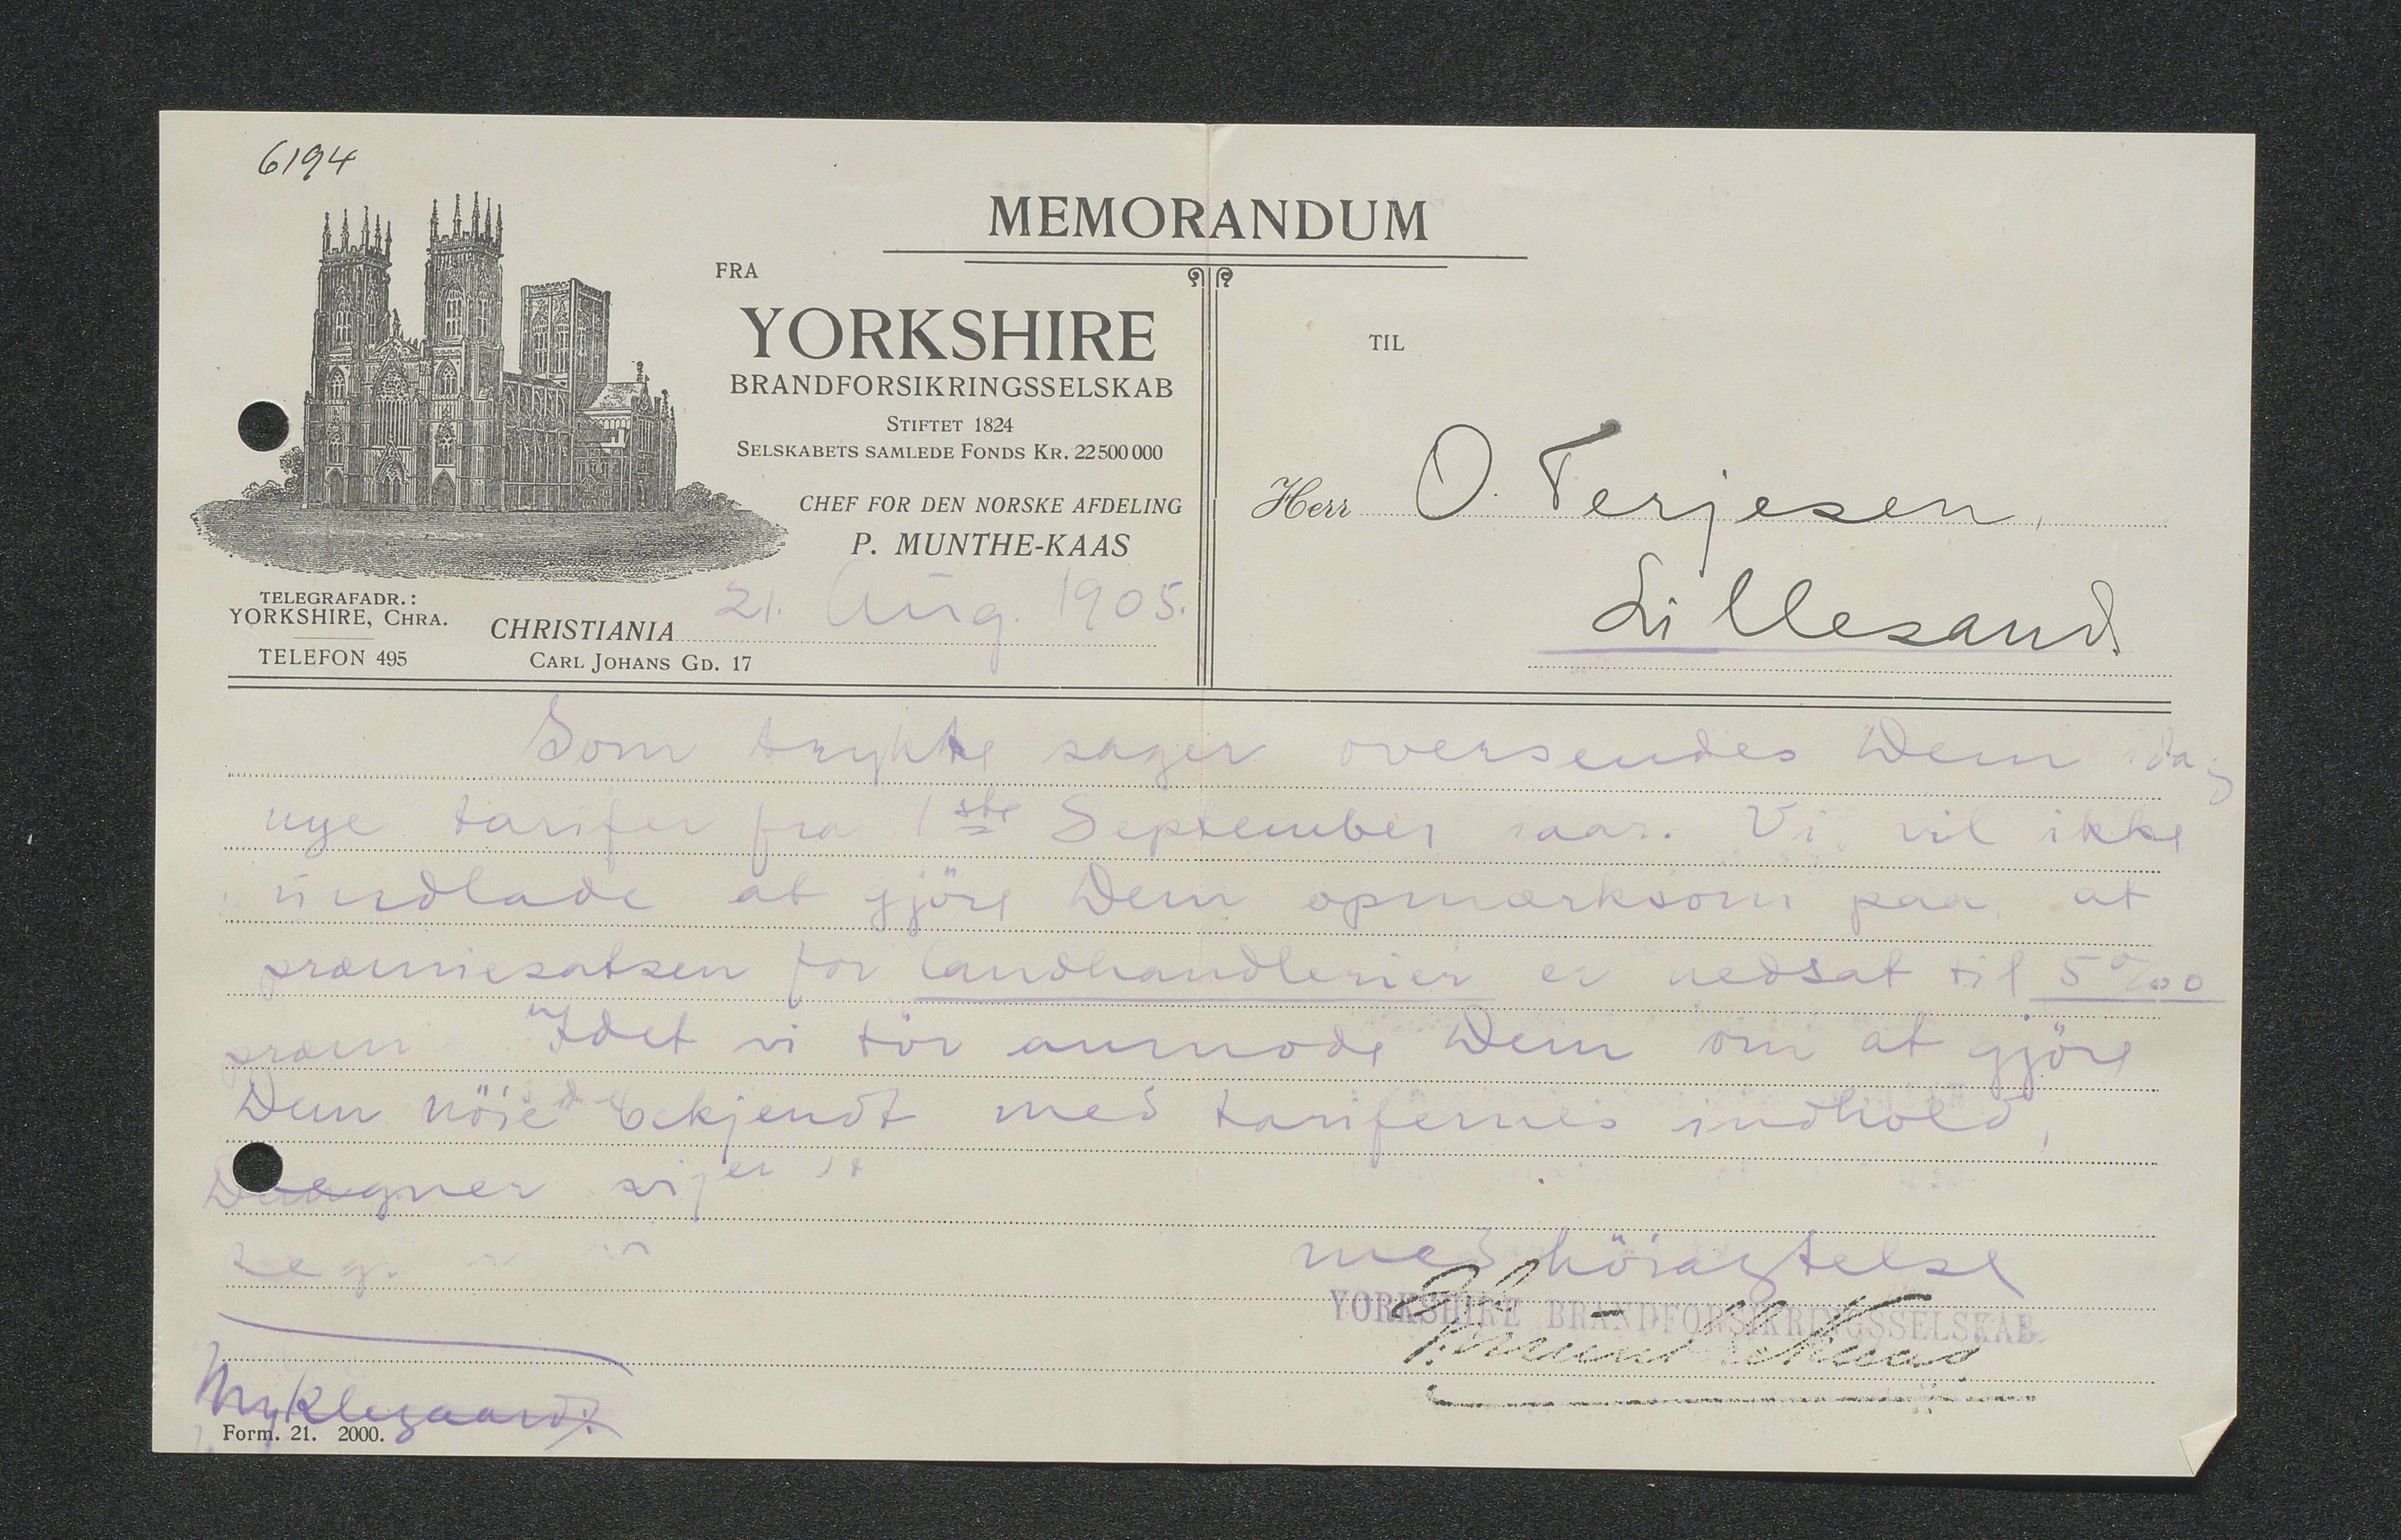 6194
MEMORANDUM
FRA
YORKSHIRE
BRANDFORSIKRINGSSELSKAB
STIFTET 1824
SELSKABETS SAMLEDE FONDS KR. 22500000
CHEF FOR DEN NORSKE AFDELING
P. MUNTHE-KAAS
TELEGRAFADR.:
YORKSHIRE, CHRA.
TELEFON 495
CHRISTIANIA 21. Aug. 1905.
CARL JOHANS GD. 17
TIL
Herr O. Terjesen,
Lillesand.
Som trykte sager oversendes Dem idag
nye tarifer fra 1ste September iaar. Vi vil ikke
undlade at gjöre Dem opmærksom paa at
præmiesatsen for landhandlerier er nedsat til 5 0/00
præm Idet vi tör anmode Dem om at gjöre
Dem nöie bekjendt med tarifernes indhold,
tegner
med höiagtelse
YORKSHIRE BRANDFORSIKRINGSSELSKAB.
P. Munthe Kaas
Myklegaard
Form. 21. 2000.